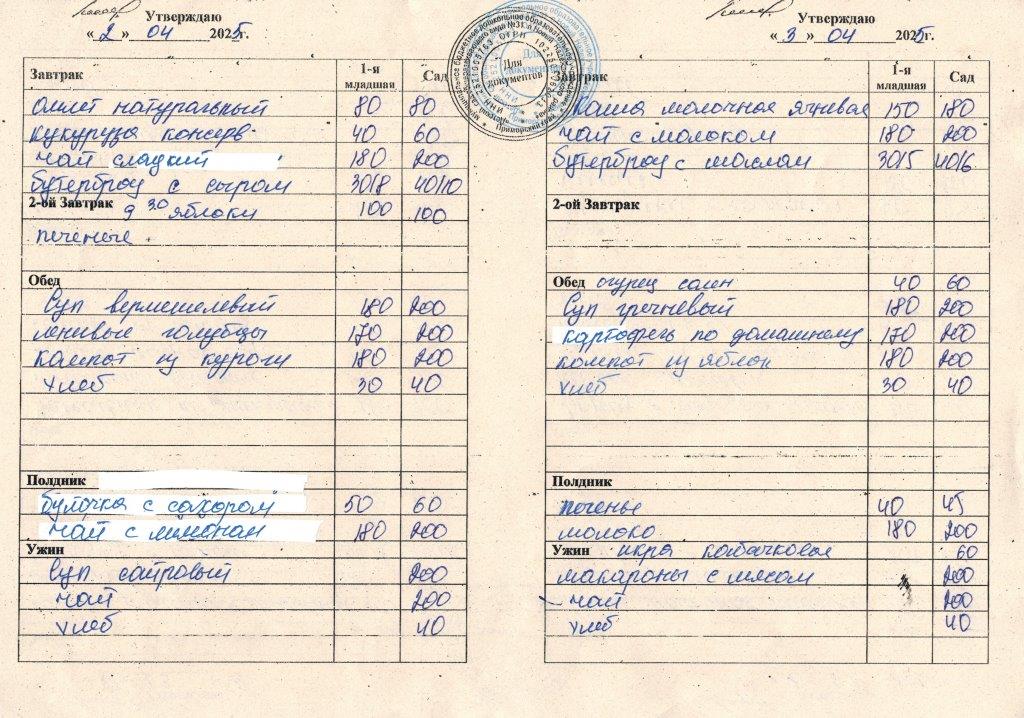 Утверждаю
« 2 » 04 2025г.
Завтрак 1-я младшая Сад
омлет натуральный 80 80
кукуруза консерв. 40 60
чай сладкий 180 200
бутерброд с сыром 30/8 40/10
2-ой Завтрак 9 30 яблоки 100 100
печеные
Обед
Суп вермешелевый 180 200
ленивые голубцы 170 200
компот из кураги 180 200
хлеб 30 40
Полдник
булочка с сахором 50 60
чай с лимоном 180 200
Ужин
Суп сайровый 200
чай 200
хлеб 40
Для документов
Приморский край
Утверждаю
« 3 » 04 2025г.
Завтрак 1-я младшая Сад
Каша молочная ячневая 150 180
чай с молоком 180 200
бутерброд с маслом 30/5 40/6
2-ой Завтрак
Обед огурец солен 40 60
Суп гречневый 180 200
картофель по домашнему 170 200
компот из яблок 180 200
хлеб 30 40
Полдник
печенье 40 45
молоко 180 200
Ужин икра кабачковая 60
макароны с мясом 200
чай 200
хлеб 40